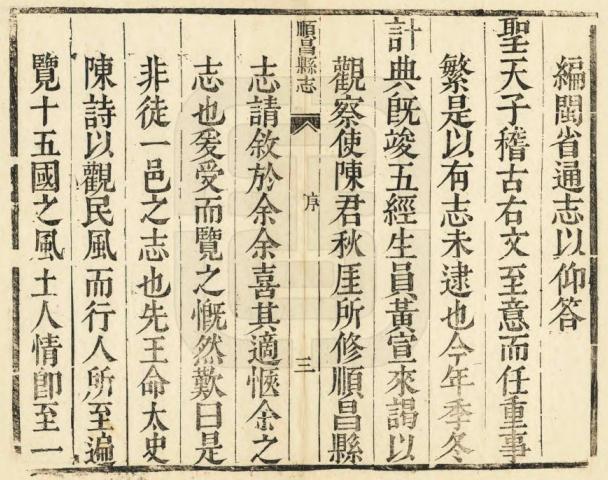 編閩省通志以仰答
聖天子稽古右文至意而任重事
繁是以有志未逮也今年季冬
計典既竣五經生員黃宣來謁以
觀察使陳君秋厓所修順昌縣
順昌縣志
序
三
志請敘於余余喜其適愜余之
志也爰受而覽之慨然歎曰是
非徒一邑之志也先王命太史
陳詩以觀民風而行人所至遍
覽十五國之風土人情卽至一